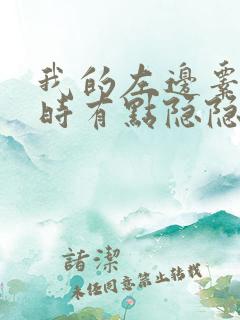 我的左邊囊
時有點隐隐
諸潔
未經同意禁止轉載